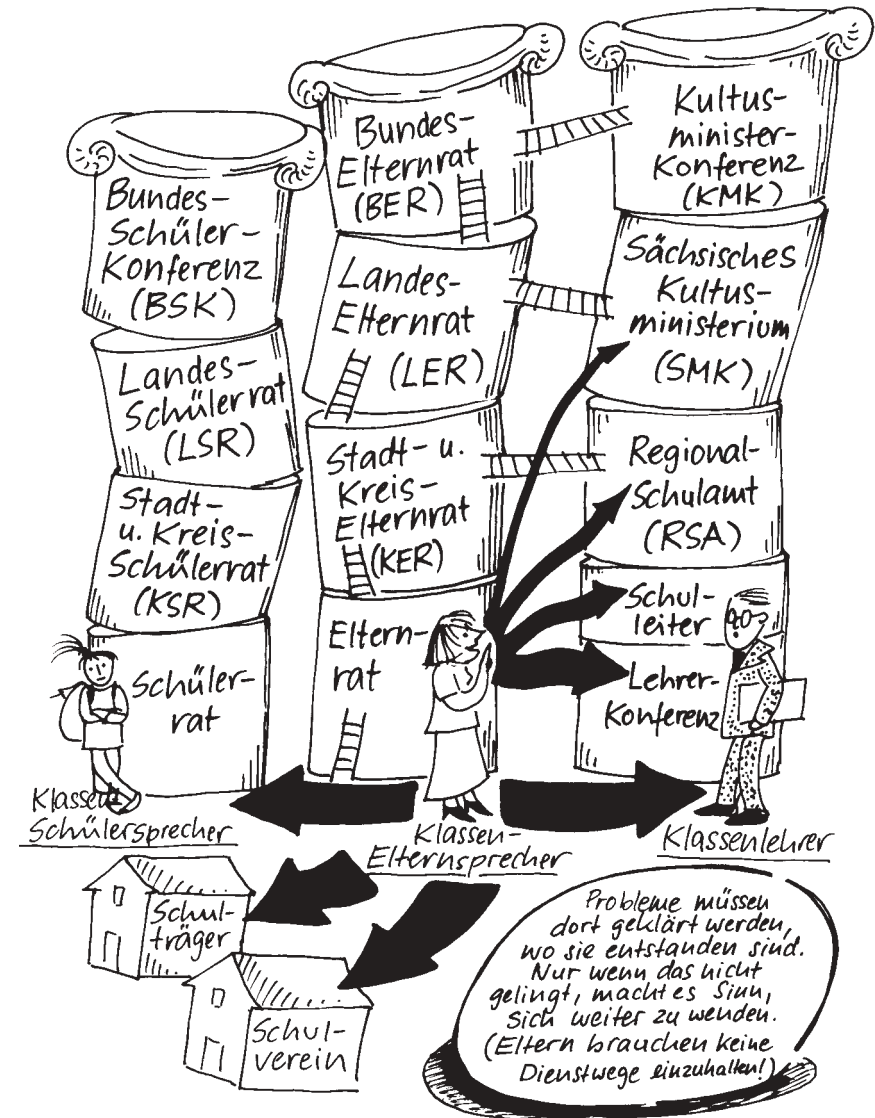 Bundes-
Schüler-
Konferenz
(BSK)
Landes-
Schülerrat
(LSR)
Stadt-
u. Kreis-
Schülerrat
(KSR)
Schüler-
rat
Bundes-
Elternrat
(BER)
Landes-
Elternrat
(LER)
Stadt- u.
Kreis-
Elternrat
(KER)
Eltern-
rat
Kultus-
minister-
Konferenz
(KMK)
Sächsisches
Kultus-
ministerium
(SMK)
Regional-
Schulamt
(RSA)
Schul-
leiter
Lehrer-
Konferenz
Klassen-
Schülersprecher
Klassen-
Elternsprecher
Klassenlehrer
Schul-
träger
Schul-
verein
Probleme müssen
dort geklärt werden,
wo sie entstanden sind.
Nur wenn das nicht
gelingt, macht es Sinn,
sich weiter zu wenden.
(Eltern brauchen keine
Dienstwege einzuhalten!)